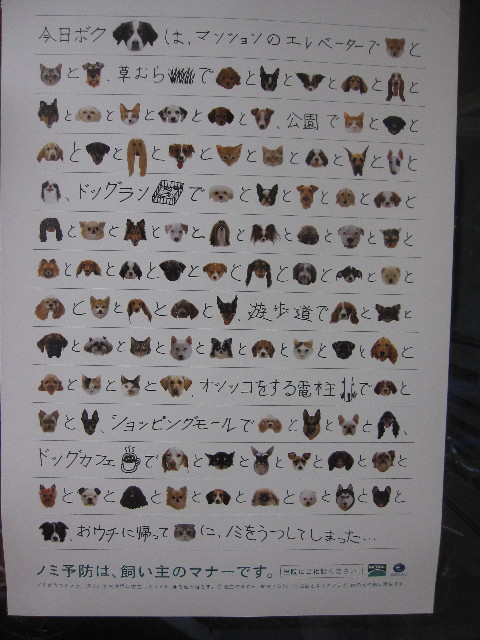 今日ボクは、マンションのエレベーターでと
と、草むらでとととと
とととととと、公園でとと
ととととととととと
、ドッグランでととととと
ととととととととと
ととととととととと
ととととと、遊歩道でとと
ととととととととと
とととと、オシッコをする電柱でと
と、ショッピングモールでととと、
ドッグカフェでとととととと
ととととととととと
、おウチに帰ってに、ノミをうつしてしまった…
ノミ予防は、飼い主のマナーです。